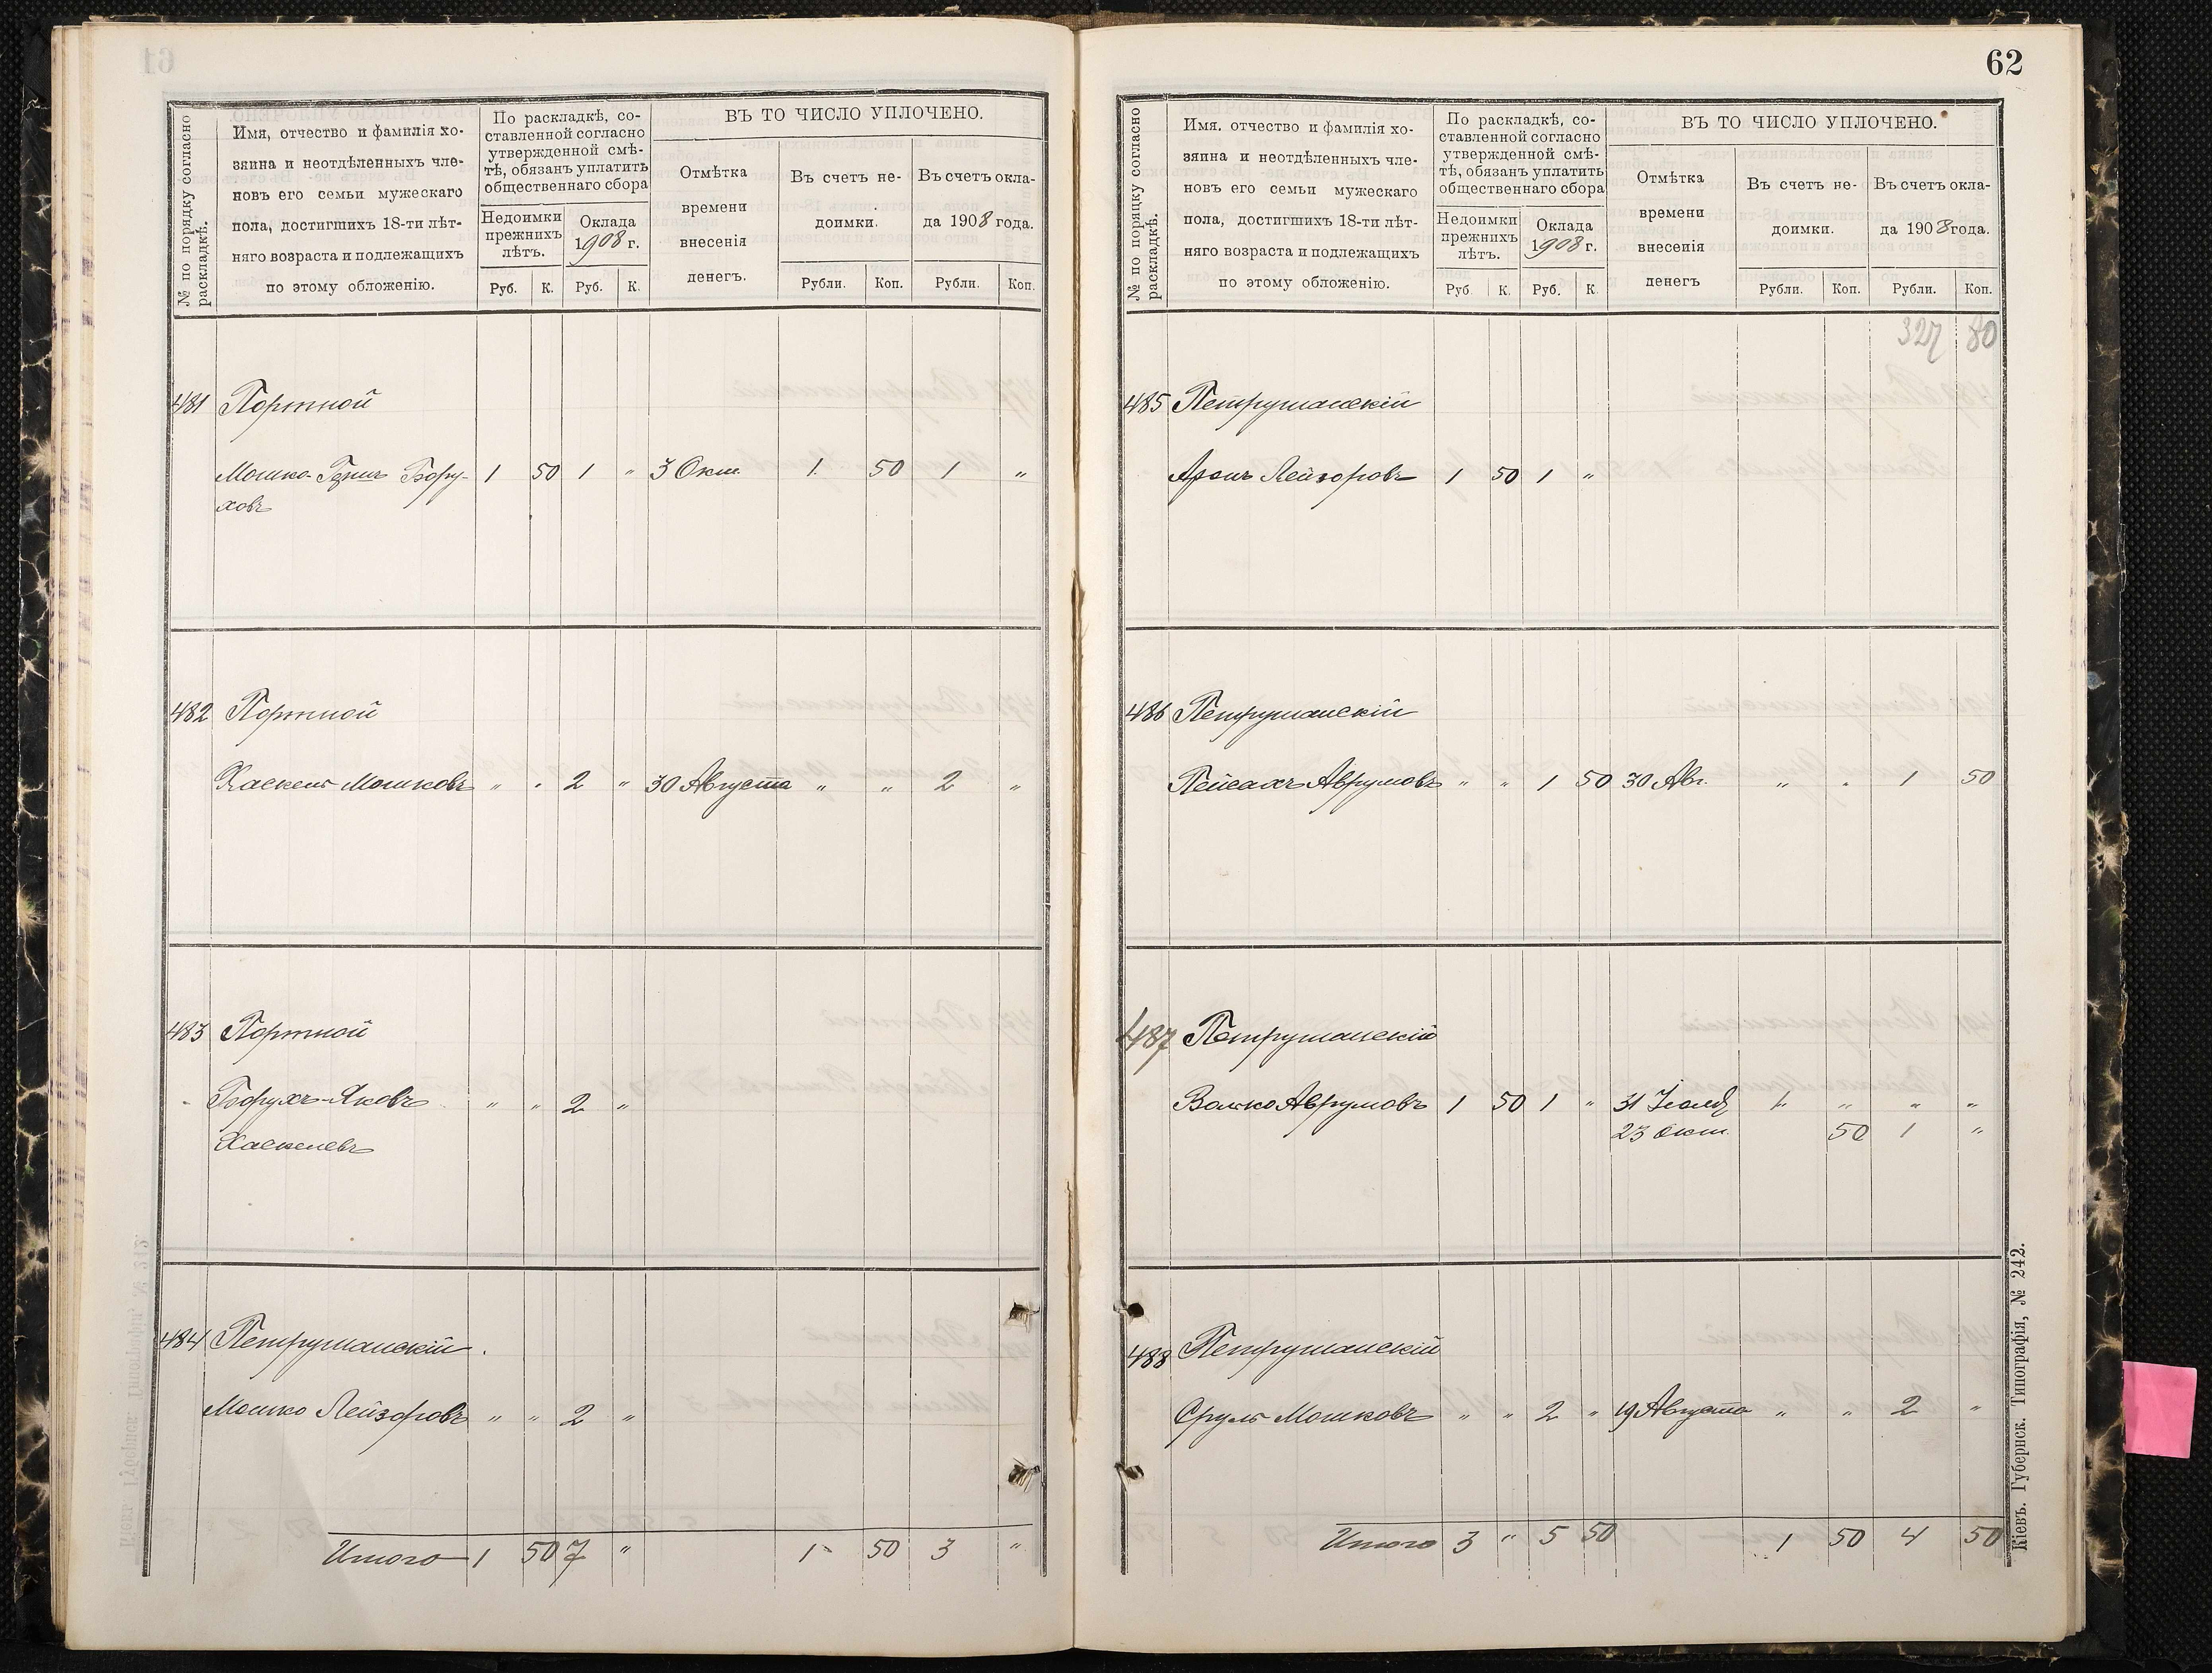 № по порядку согласно раскладкѣ.
Имя, отчество и фамилія хо-
зяина и неотдѣленныхъ чле-
новъ его семьи мужескаго
пола, достигшихъ 18-ти лѣт-
няго возраста и подлежащихъ
по этому обложенію.
По раскладкѣ, со-
ставленной согласно
утвержденной смѣ-
тѣ, обязанъ уплатить
общественнаго сбора
Недоимки прежнихъ лѣтъ.
Оклада 1908 г.
Руб. К. Руб. К.
ВЪ ТО ЧИСЛО УПЛОЧЕНО.
Отмѣтка
времени
внесенія
денегъ.
Въ счетъ не-
доимки.
Въ счетъ окла-
да 1908 года.
Рубли. Коп. Рубли. Коп.
481 Портной
Мошко-Гершъ Бору- 1 50 1 " 3 Окт. 1 50 1 "
ховъ
482 Портной
Хаскель Мошковъ " " 2 " 30 Августа " " 2 "
483 Портной
Борухъ-Яковъ " " 2 "
Хаскелевъ
484 Петрушанскій
Мошко Лейзоровъ " " 2 "
Итого 1 50 7 " 1 50 3 "
62
№ по порядку согласно раскладкѣ.
Имя. отчество и фамилія хо-
зяина и неотдѣленныхъ чле-
новъ его семьи мужескаго
пола, достигшихъ 18-ти лѣт-
няго возраста и подлежащихъ
по этому обложенію.
По раскладкѣ, со-
ставленной согласно
утвержденной смѣ-
тѣ, обязанъ уплатить
общественнаго сбора
Недоимки прежнихъ лѣтъ.
Оклада 1908 г.
Руб. К. Руб. К.
ВЪ ТО ЧИСЛО УПЛОЧЕНО.
Отмѣтка
времени
внесенія
денегъ
Въ счетъ не-
доимки.
Въ счетъ окла-
да 1908 года.
Рубли. Коп. Рубли. Коп.
327 80
485 Петрушанскій
Аронъ Лейзоровъ 1 50 1 "
486 Петрушанскій
Пейсахъ Аврумовъ " " 1 50 30 Авг. " " 1 50
487 Петрушанскій
Волько Аврумовъ 1 50 1 " 31 Іюля 1 " " "
23 Окт. 50 1 "
488 Петрушанскій
Сруль Мошковъ " " 2 " 19 Августа " " 2 "
Итого 3 " 5 50 1 50 4 50
Кіевъ. Губернск. Типографія, № 242.